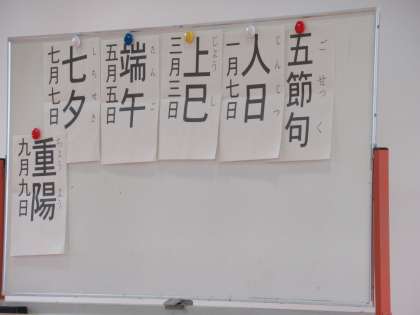 五節句
ごせっく
人日
じんじつ
一月七日
上巳
じょうし
三月三日
端午
たんご
五月五日
七夕
しちせき
七月七日
重陽
ちょうよう
九月九日